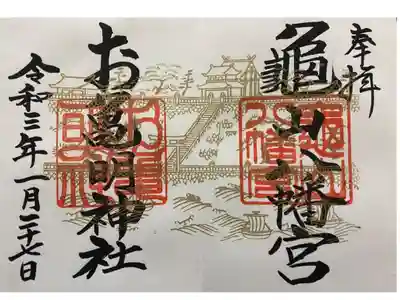 奉拝
龜山八幡宮
お亀明神社
令和三年一月二十七日